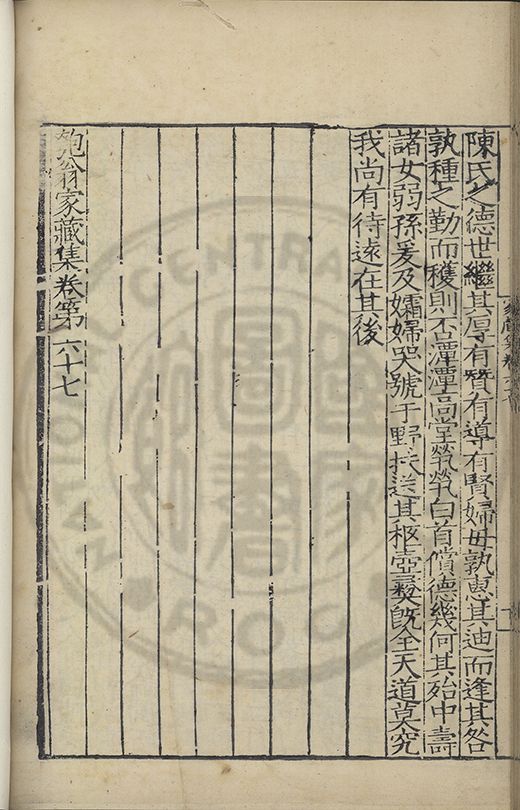 陳氏之德世繼其厚有贊有導有賢婦母孰惠其迪而逢其咎
孰種之勤而穫則不潭潭高堂煢煢白首償德幾何其殆中壽
諸女弱孫爰及孀婦哭號于野扶送其柩壺彛旣全天道莫究
我尚有待遠在其後
匏翁家藏集卷第六十七